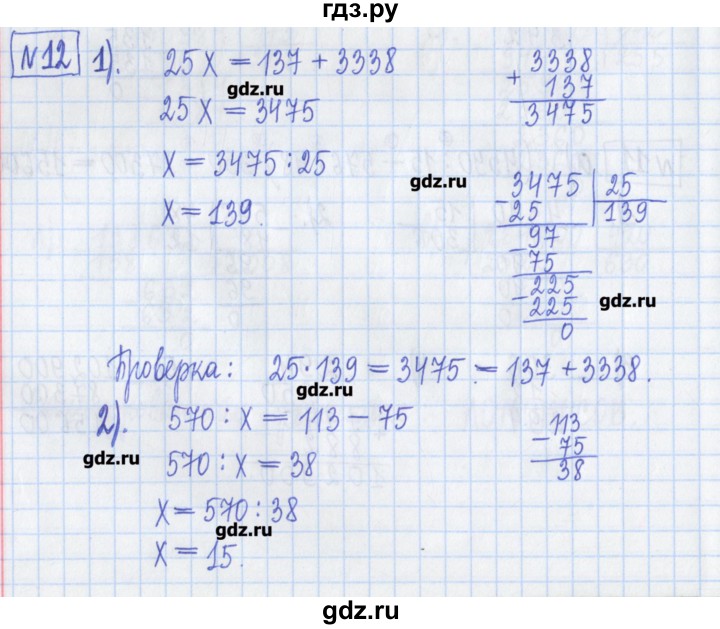 гдз.ру
№12 1). 25X = 137 + 3338
gdz.ru
25X = 3475
X = 3475 : 25
X = 139.
3338
+ 137
3475
gdz.ru
3475 | 25
- 25 | 139
- 97
75
- 225
225
0
gdz.ru
Проверка: 25·139 = 3475 = 137 + 3338.
gdz.ru
2). 570 : X = 113 - 75
gdz.ru
570 : X = 38
X = 570 : 38
gdz.ru
X = 15.
- 113
75
38
gdz.ru